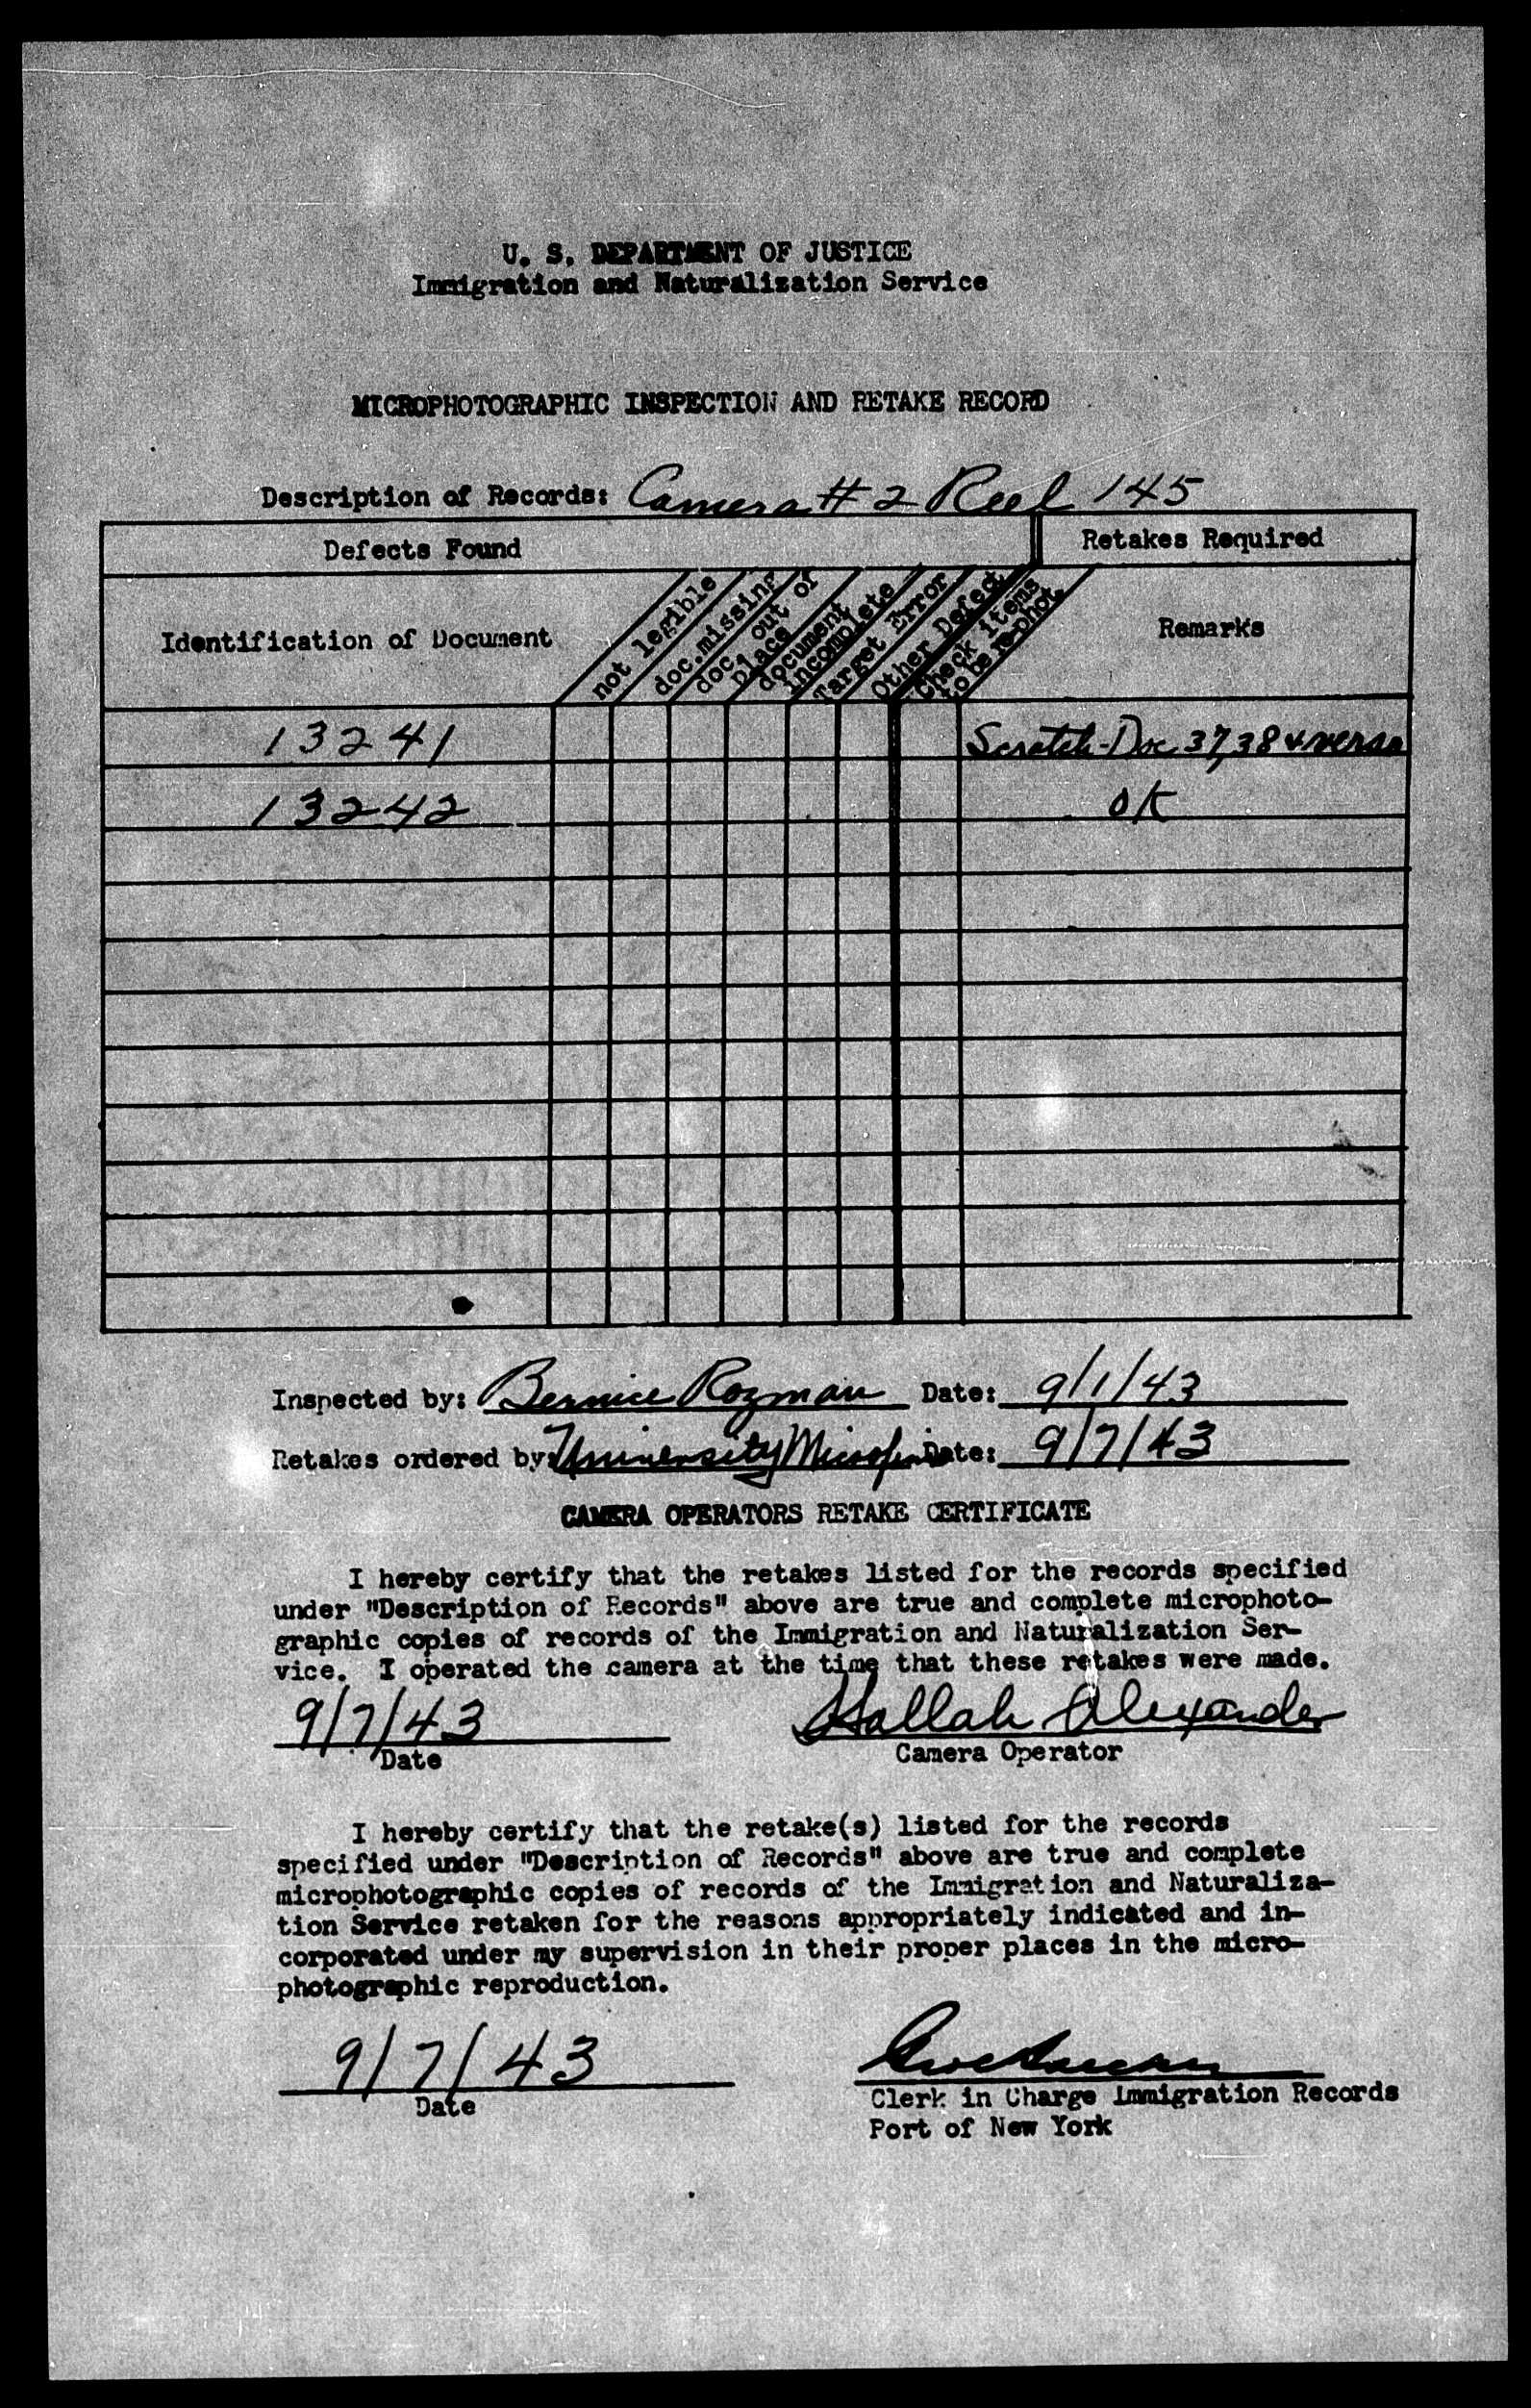 U. S. DEPARTMENT OF JUSTICE
Immigration and Naturalization Service
MICROPHOTOGRAPHIC INSPECTION AND RETAKE RECORD
Description of Records: Camera # 2 Reel 145
Defects Found
Retakes Required
Identification of Document
not legible
doc. missing
doc. out of
place
document
incomplete
Target Error
Other Defect
Check items
to be re-phot.
Remarks
13241 Scratch-Doc 37,38 & verso
13242 OK
Inspected by: Bernice Rozman Date: 9/1/43
Retakes ordered by: University Microfilms Date: 9/7/43
CAMERA OPERATORS RETAKE CERTIFICATE
I hereby certify that the retakes listed for the records specified
under "Description of Records" above are true and complete microphoto-
graphic copies of records of the Immigration and Naturalization Ser-
vice. I operated the camera at the time that these retakes were made.
9/7/43 Hallah Alexander
Date Camera Operator
I hereby certify that the retake(s) listed for the records
specified under "Description of Records" above are true and complete
microphotographic copies of records of the Immigration and Naturaliza-
tion Service retaken for the reasons appropriately indicated and in-
corporated under my supervision in their proper places in the micro-
photographic reproduction.
9/7/43
Date
Clerk in Charge Immigration Records
Port of New York